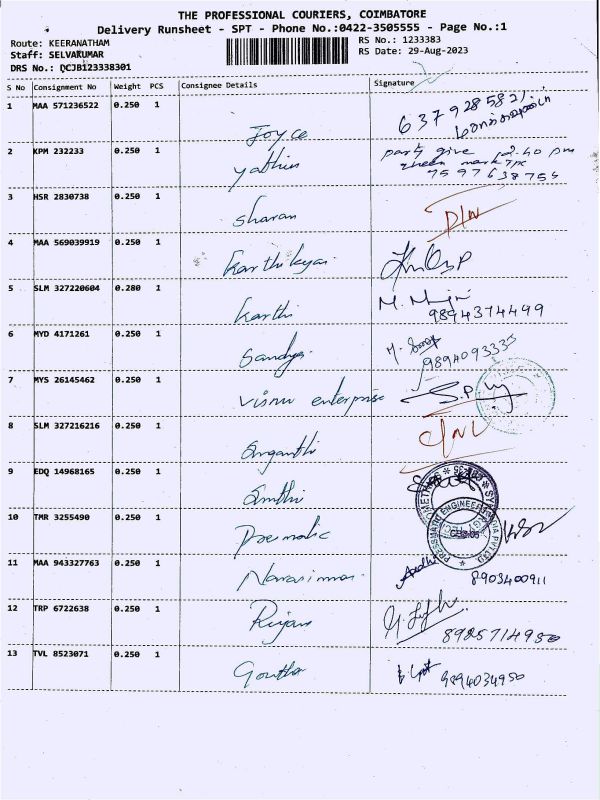 THE PROFESSIONAL COURIERS, COIMBATORE
Delivery Runsheet - SPT - Phone No.:0422-3505555 - Page No.:1
Route: KEERANATHAM
RS No.: 1233383
Staff: SELVAKUMAR
RS Date: 29-Aug-2023
DRS No.: QCJB123338301
S No Consignment No Weight PCS Consignee Details Signature
1 MAA 571236522 0.250 1
Joyce
2 KPM 232233 0.250 1 party give
yathin 7597638754
3 HSR 2830738 0.250 1
Sharan D/N
4 MAA 569039919 0.250 1
Karthikyai
5 SLM 327220604 0.280 1 M.
Karthi 9894374499
6 MYD 4171261 0.250 1 M.
Sandya 9894093335
7 MYS 26145462 0.250 1
Visnu enterprise S.P
8 SLM 327216216 0.250 1
9 EDQ 14968165 0.250 1
Smthi
10 TMR 3255490 0.250 1
11 MAA 943327763 0.250 1
8903400911
12 TRP 6722638 0.250 1
8925714950
13 TVL 8523071 0.250 1
Goutha 9894034950